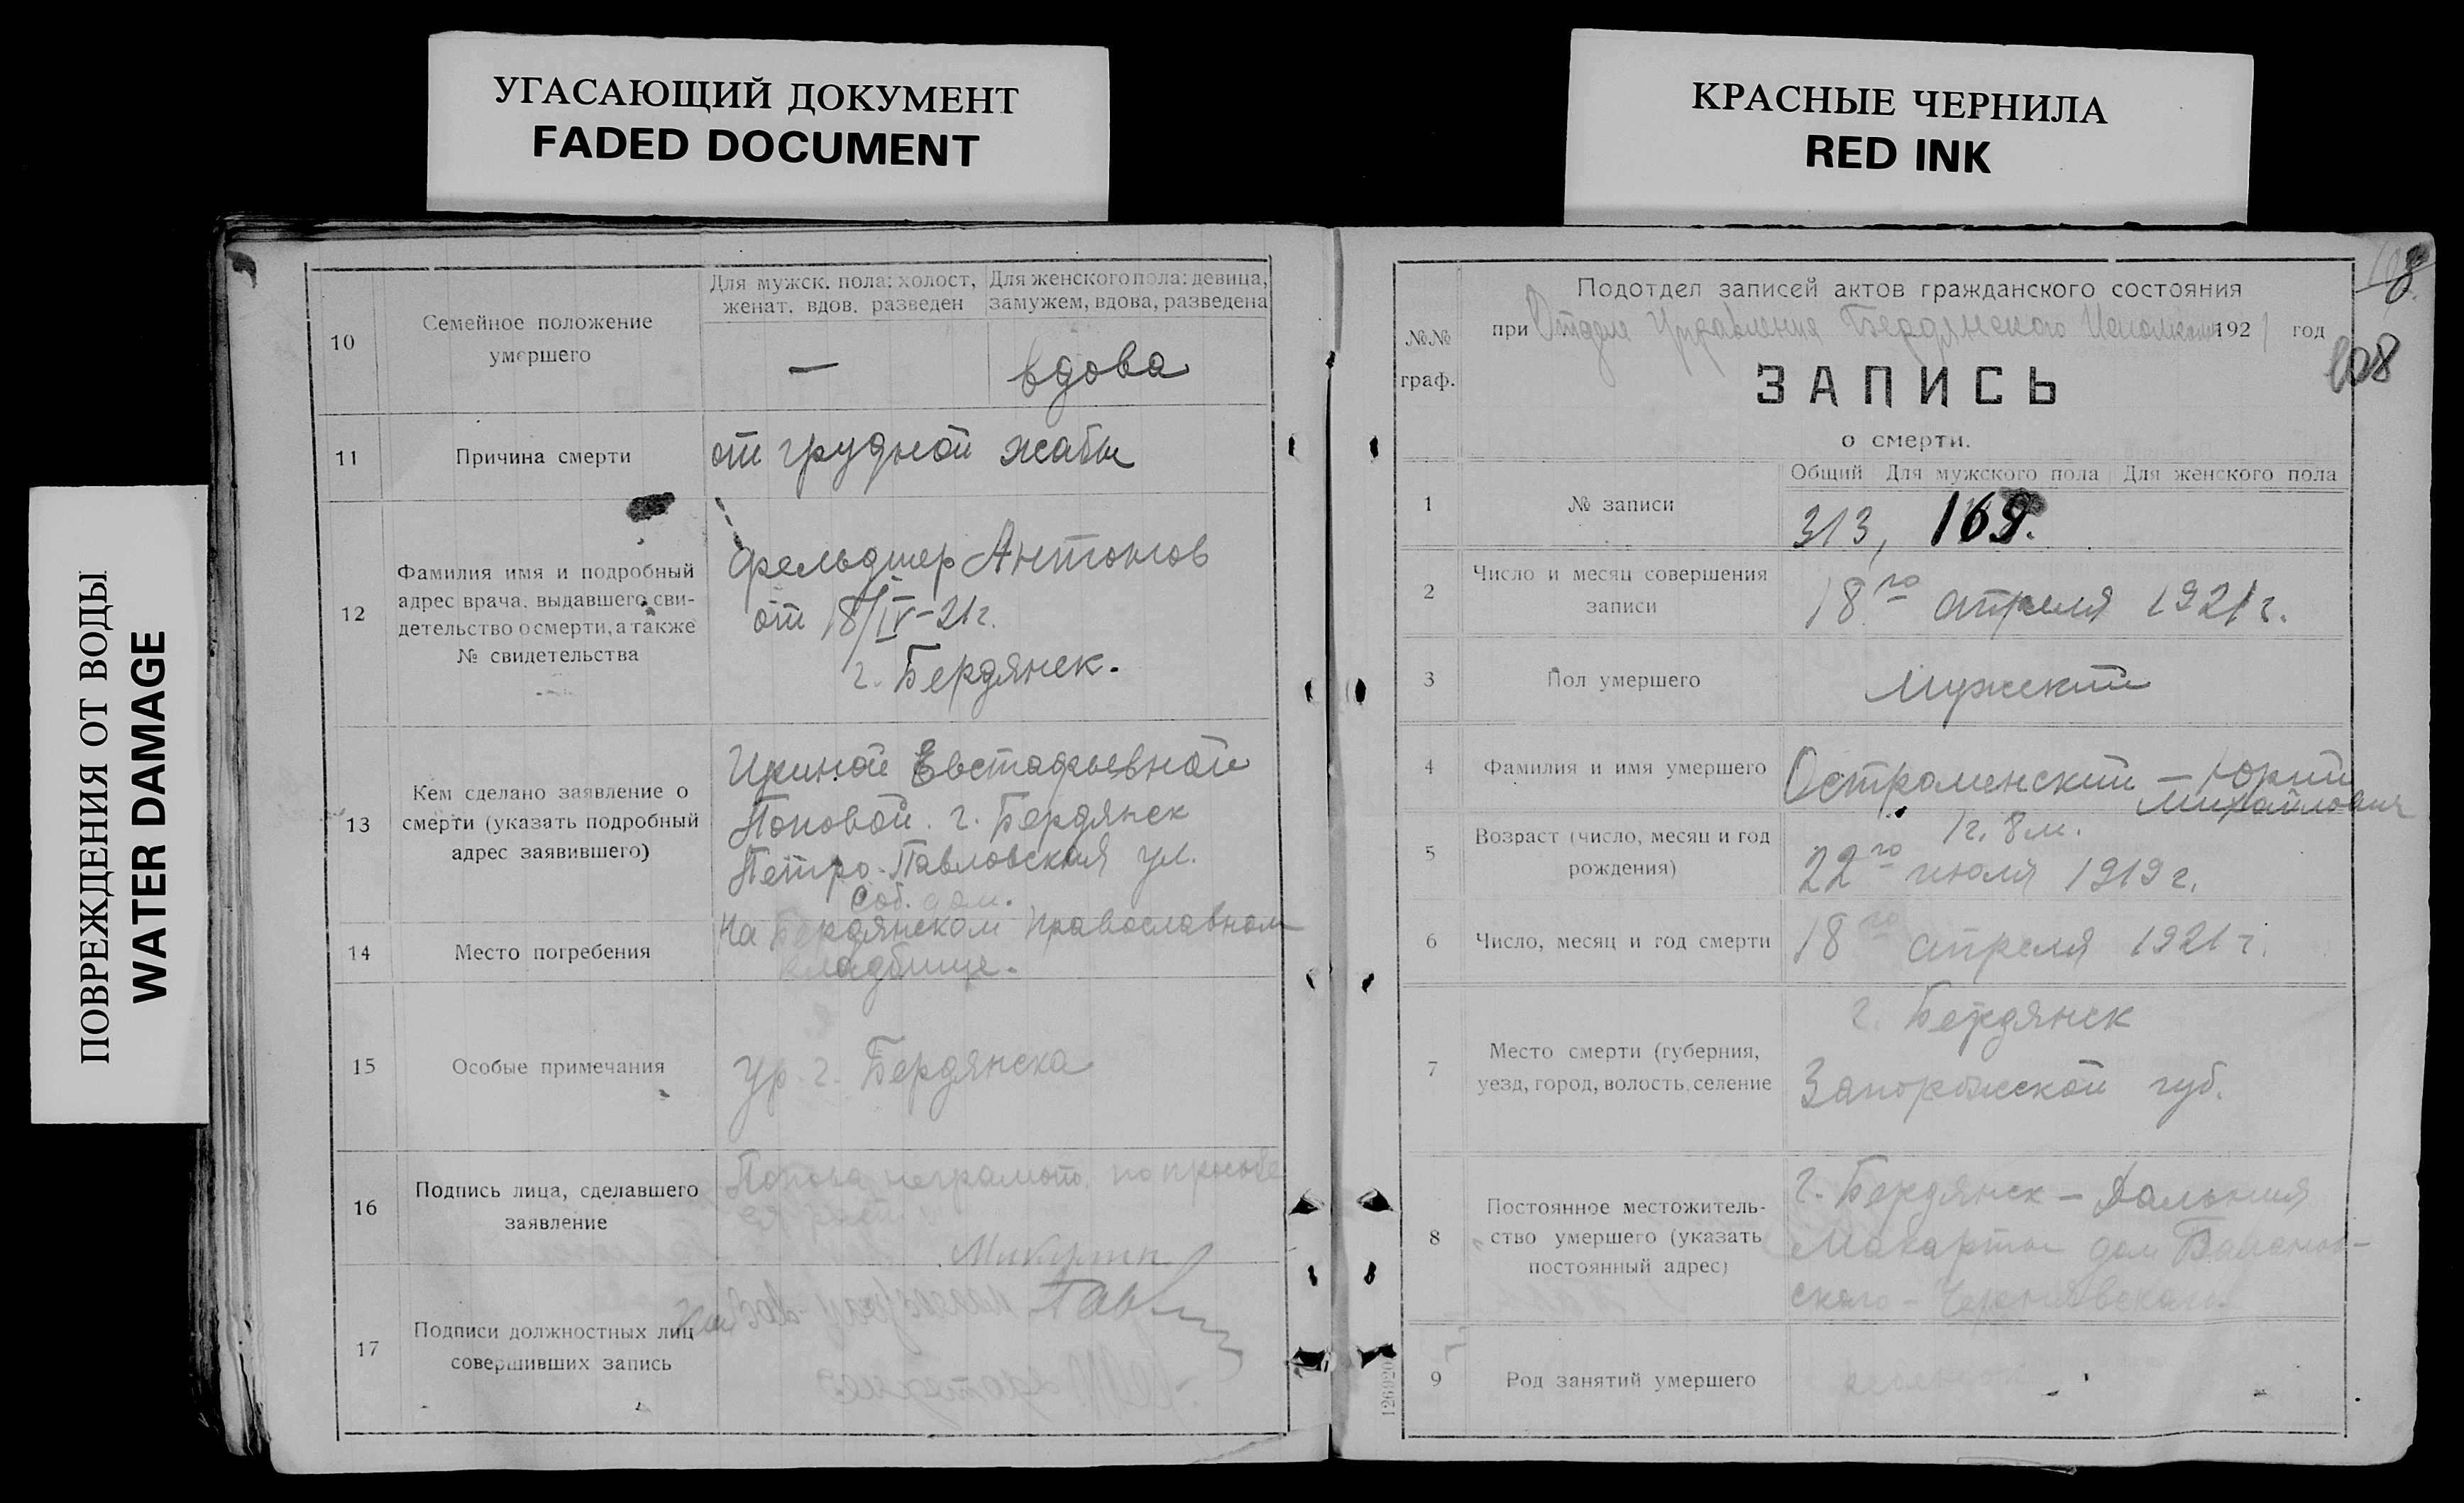 УГАСАЮЩИЙ ДОКУМЕНТ
FADED DOCUMENT
КРАСНЫЕ ЧЕРНИЛА
RED INK
ПОВРЕЖДЕНИЯ ОТ ВОДЫ
WATER DAMAGE
10
Семейное положение
умершего
Для мужск. пола: холост,
женат, вдов, разведен
Для женского пола: девица,
замужем, вдова, разведена
—
вдова
11
Причина смерти
от грудной жабы
12
Фамилия имя и подробный
адрес врача, выдавшего сви-
детельство о смерти, а также
№ свидетельства
фельдшер Антонов
от 18/IV-21г.
г. Бердянск.
13
Кем сделано заявление о
смерти (указать подробный
адрес заявившего)
Ириной Евстафьевной
Поповой. г. Бердянск
Петро-Павловская ул.
соб. дом.
14
Место погребения
На Бердянском православном
кладбище.
15
Особые примечания
Ур. г. Бердянска
16
Подпись лица, сделавшего
заявление
Попова неграмот. по просьбе
17
Подписи должностных лиц
совершивших запись
108
№№
граф.
Подотдел записей актов гражданского состояния
при Отделе Управления Бердянского 1921 год
ЗАПИСЬ
о смерти.
1
№ записи
Общий Для мужского пола Для женского пола
313, 169.
2
Число и месяц совершения
записи
18го апреля 1921 г.
3
Пол умершего
Мужский
4
Фамилия и имя умершего
Остроменский — Юрий
Михайлович
5
Возраст (число, месяц и год
рождения)
1 г. 8 м.
22го июля 1919 г.
6
Число, месяц и год смерти
18го апреля 1921 г.
7
Место смерти (губерния,
уезд, город, волость, селение
г. Бердянск
Запорожской губ.
8
Постоянное местожитель-
ство умершего (указать
постоянный адрес)
г. Бердянск — Дальния
Макорты дом
9
Род занятий умершего